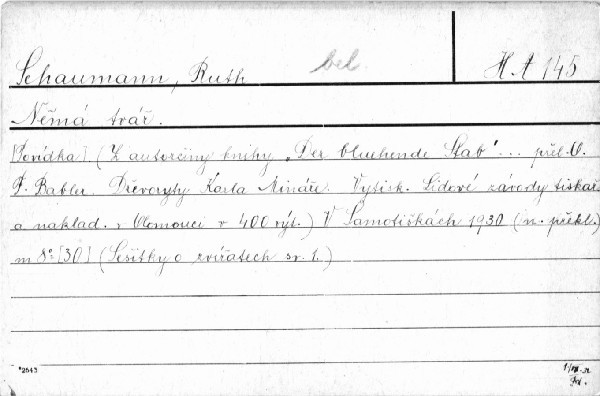 Schaumann, Ruth bel H A 145
Němá tvář.
[Povídka] (Z autorčiny knihy „Der bluehende Stab" ... přel. O.
F. Babler. Dřevoryty Karla Mináře. Vytisk. Lidové závody tiskař.
a naklad. v Olomouci v 400 výt.) V Samotiškách 1930 (n. překl.)
m 8° [30] (Sešitky o zvířatech sv. 1.)
*2643